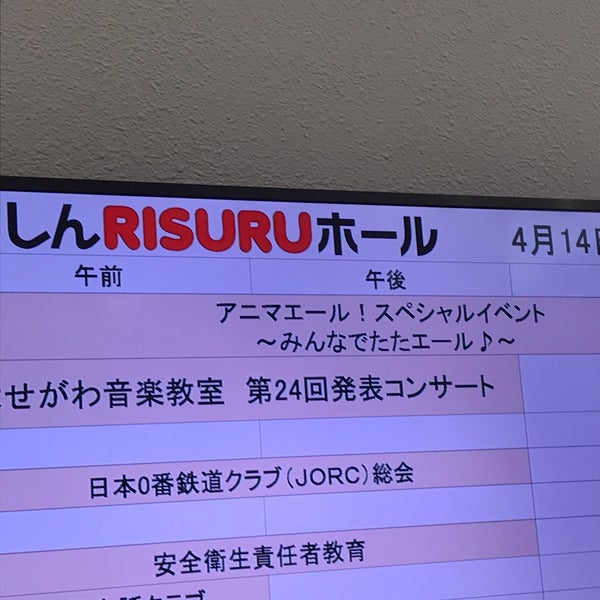 しんRISURUホール 4月14日
午前 午後
アニマエール！スペシャルイベント
～みんなでたたエール♪～
せがわ音楽教室 第24回発表コンサート
日本0番鉄道クラブ(JORC)総会
安全衛生責任者教育
クラブ